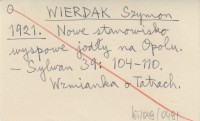 WIERDAK Szymon
1921. Nowe stanowisko
wyspowe jodły na Opolu.
– Sylwan 39: 104–110.
Wzmianka o Tatrach.